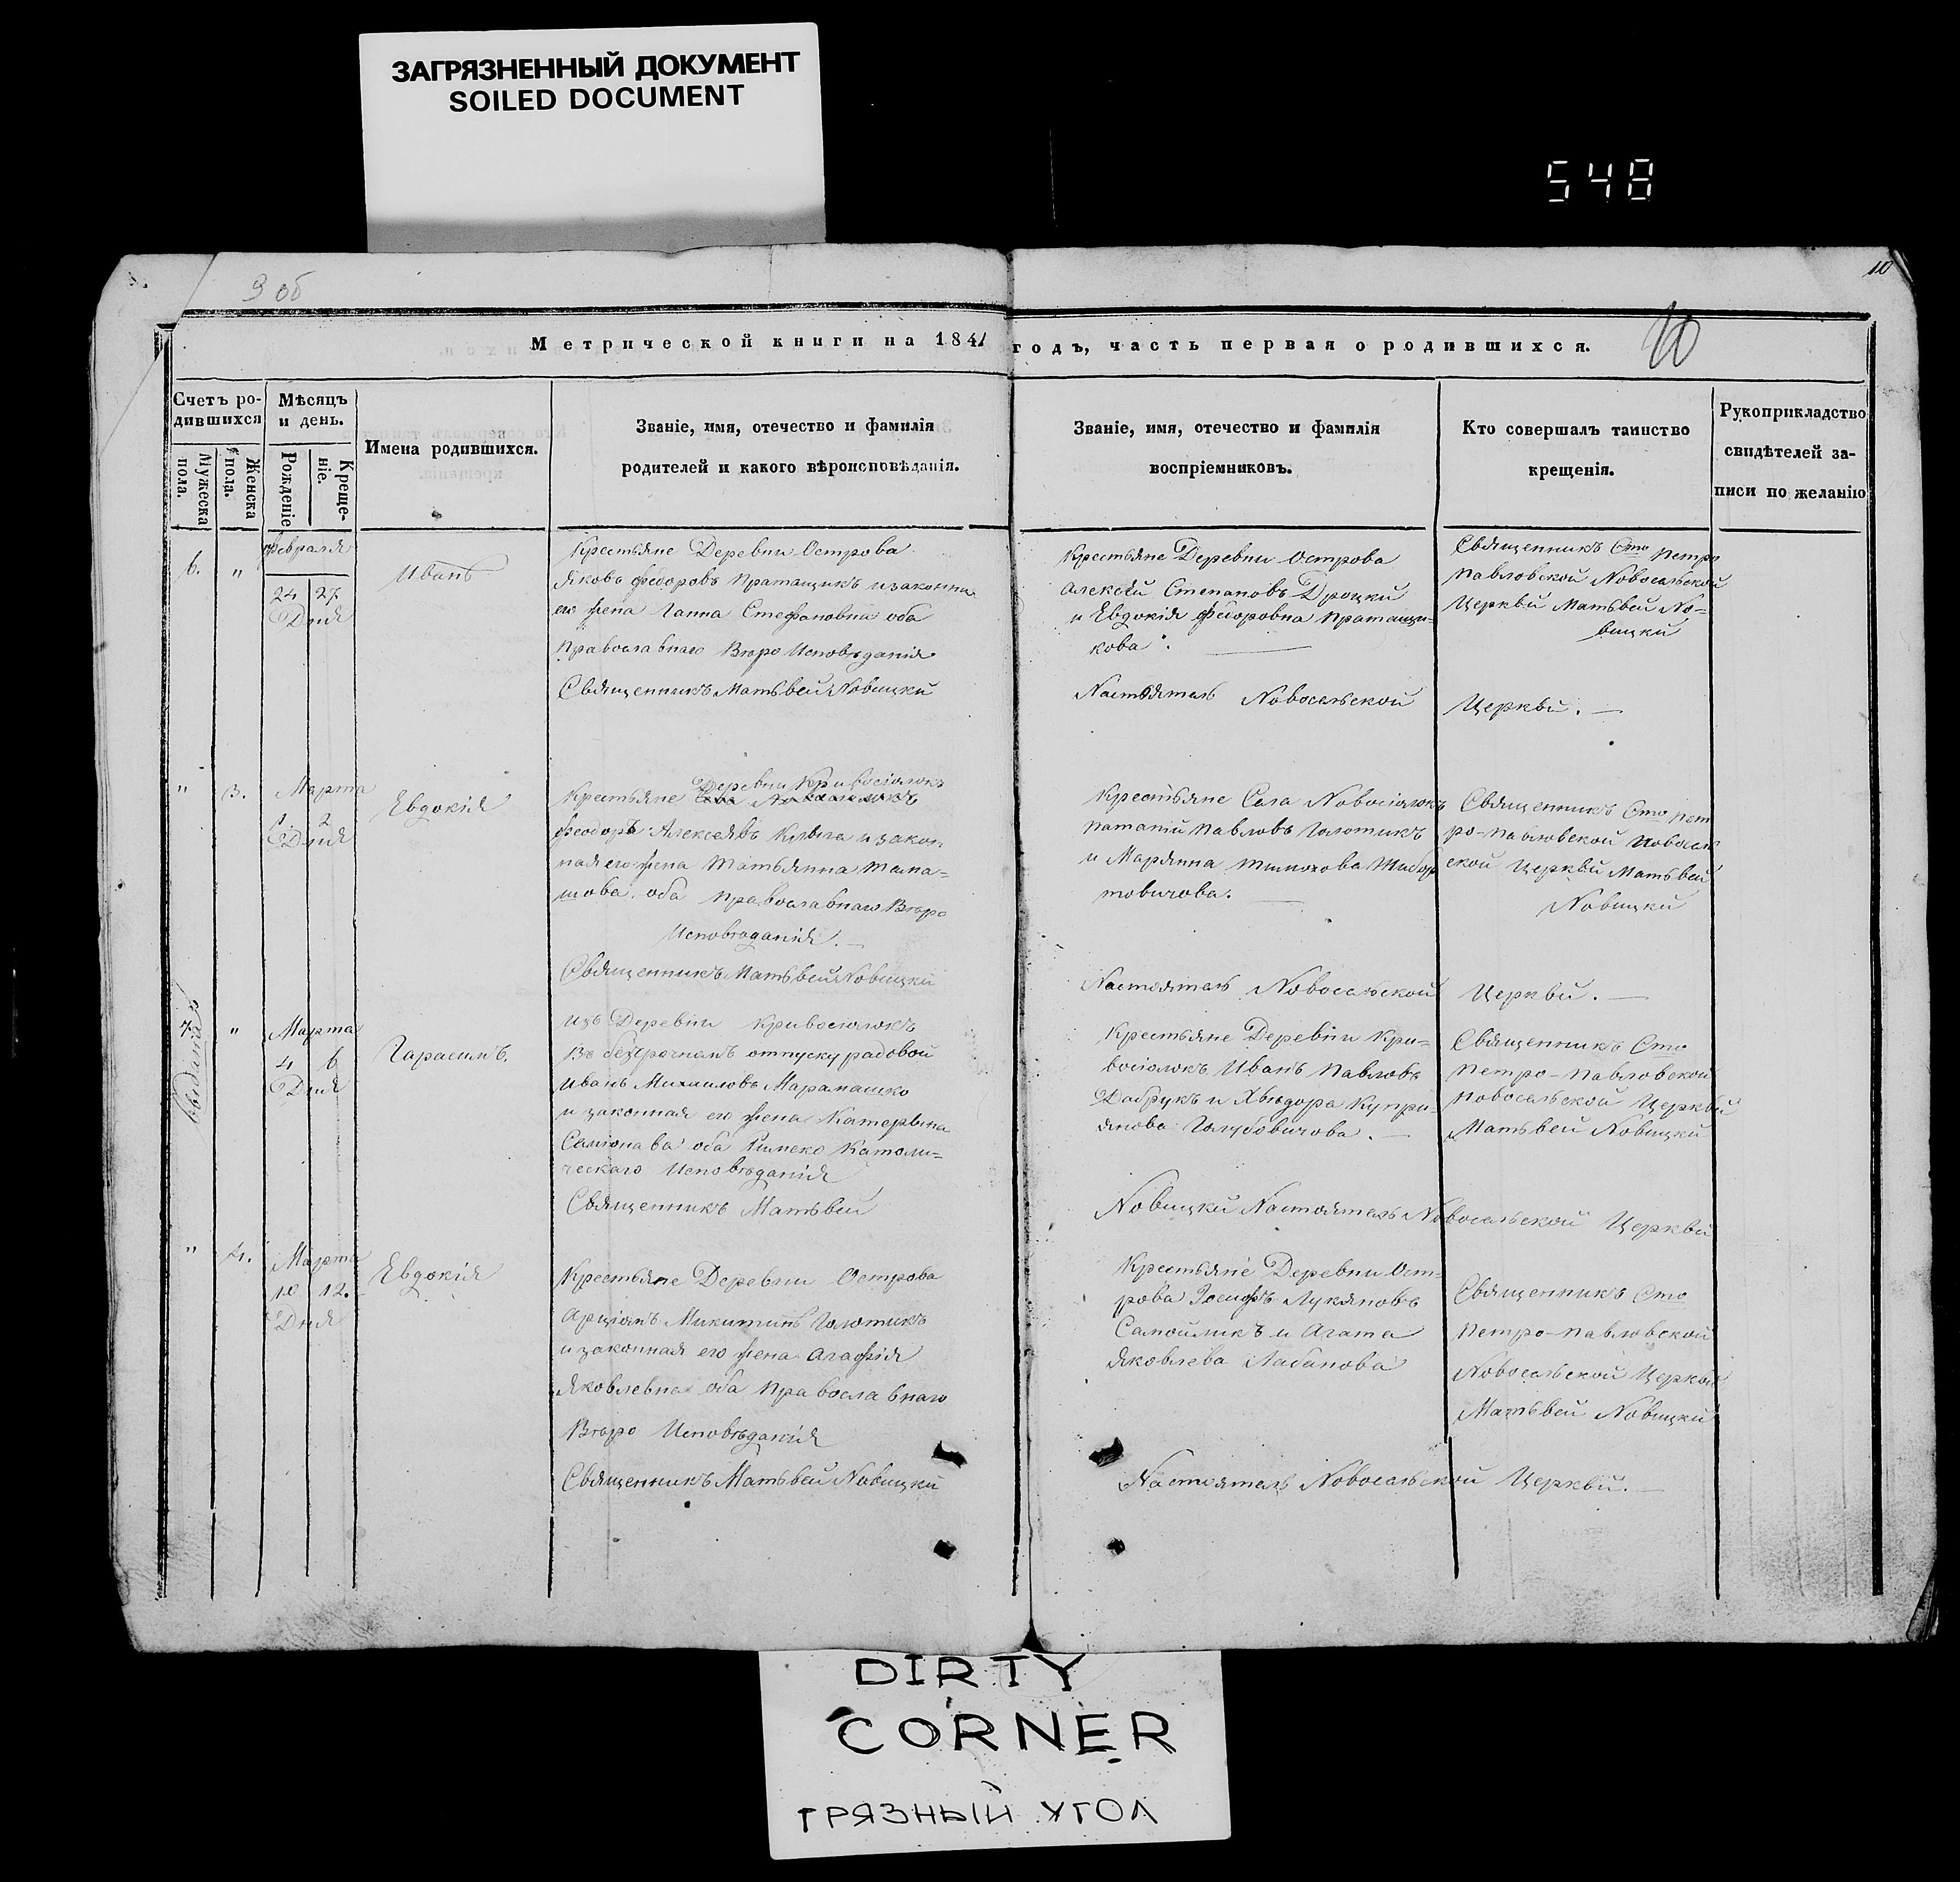 ЗАГРЯЗНЕННЫЙ ДОКУМЕНТ
SOILED DOCUMENT
548
9 об
10
10
Метрической книги на 1841 годъ, часть первая о родившихся.
Счетъ ро-
дившихся
Мужеска
пола.
Женска
пола.
Мѣсяцъ
и день.
Рожденіе
Креще-
ніе.
Имена родившихся.
Званіе, имя, отечество и фамилія
родителей и какого вѣроисповѣданія.
Званіе, имя, отечество и фамилія
воспріемниковъ.
Кто совершалъ таинство
крещенія.
Рукоприкладство
свидѣтелей за-
писи по желанію
6.
"
февраля
24 27
Дня
Иванъ
Крестьяне Деревни Острова
Яковъ Федоровъ Пратащикъ и законна
его жена Ганна Стефановна оба
Православнаго Вѣро Исповѣданія
Священникъ Матьвей Новицкий
Крестьяне Деревни Острова
Алексѣй Степановъ Дроцкий
и Евдокія Федоровна Пратащи-
кова.
Настоятель Новосельской Церкви.
Священникъ Сто Петро
Павловской Новосельской
Церкви Матьвей Но-
вицкий
"
3.
Марта
1. 2
Дня
Евдокія
Деревни Кривосіолокъ
Крестьяне
Феодоръ Алексѣевъ и закон.
ная его жена Татьянна
оба православнаго Вѣро
Исповѣданія.
Священникъ Матьвей Новицкий
Крестьяне Села Новосіолокъ
Патапій Павловъ Голотикъ
и Марянна
товичова.
Настоятель Новосельской Церкви.
Священникъ Сто Пет
ро-Павловской Новосель
ской Церкви Матьвей
Новицкий
7
"
Марта
4 6
Дня
Гарасимъ.
Изъ Деревни Кривосіолокъ
Въ безсрочномъ отпуску радовой
Иванъ Михаиловъ Марамашко
и законная его жена Катерына
оба Римско Католи-
ческаго Исповѣданія
Священникъ Матьвей
Крестьяне Деревни Кри-
восіолокъ Иванъ Павловъ
Дабрукъ и Хвядора Купри-
янова Голубовичова.
Новицкий Настоятель Новосельской Церкви
Священникъ Сто
Петро-Павловской
Новосельской Церкви
Матьвей Новицкий
"
4.
Марта
10 12.
Дня
Евдокія
Крестьяне Деревни Острова
Арціомъ Микитинъ Голотикъ
и законная его жена Агафія
Яковлевна оба Православнаго
Вѣро Исповѣданія
Священникъ Матьвей Новицкий
Крестьяне Деревни Ост-
рова Іосифъ Лукяновъ
Самойликъ и Агата
Яковлева Лабанова
Настоятель Новосельской Церкви.
Священникъ Сто
Петро-Павловской
Новосельской Церкви
Матьвей Новицкий
DIRTY
CORNER
ГРЯЗНЫЙ УГОЛ